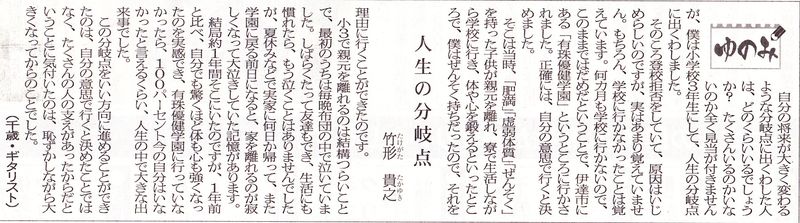 ゆのみ
自分の将来が大きく変わる
ような分岐点に出くわした人
は、どのくらいいるでしょう
か？　たくさんいるのかいな
いのか全く見当が付きません
が、僕は小学校3年生にして、人生の分岐点
に出くわしました。
そのころ登校拒否をしていて、原因はいじ
めらしいのですが、実はあまり覚えていませ
ん。もちろん、学校に行かなかったことは覚
えています。何カ月も学校に行かないので、
このままではだめだということで、伊達市に
ある「有珠優健学園」というところに行かさ
れました。正確には、自分の意思で行くと決
めました。
そこは当時、「肥満」「虚弱体質」「ぜんそく」
を持った子供が親元を離れ、寮で生活しなが
ら学校に行き、体や心を鍛えるといったとこ
ろで、僕はぜんそく持ちだったので、それを
人生の分岐点
竹形　貴之
たけがた　たかゆき
理由に行くことができたのです。
小3で親元を離れるのは結構つらいこと
で、最初のうちは毎晩布団の中で泣いていま
した。しばらくたって友達もでき、生活にも
慣れたら、もう泣くことはありませんでした
が、夏休みなどで実家に何日か帰って、また
学園に戻る前日になると、家を離れるのが寂
しくなって大泣きしていた記憶があります。
結局約1年間そこにいたのですが、1年前
と比べ、自分でも驚くほど体も心も強くなっ
たのを実感でき、有珠優健学園に行っていな
かったら、100パーセント今の自分はいな
かったと言えるくらい、人生の中で大きな出
来事でした。
この分岐点をいい方向に進めることができ
たのは、自分の意思で行くと決めたことでは
なく、たくさんの人の支えがあったからだと
いうことに気付いたのは、恥ずかしながら大
きくなってからのことでした。
（千歳・ギタリスト）